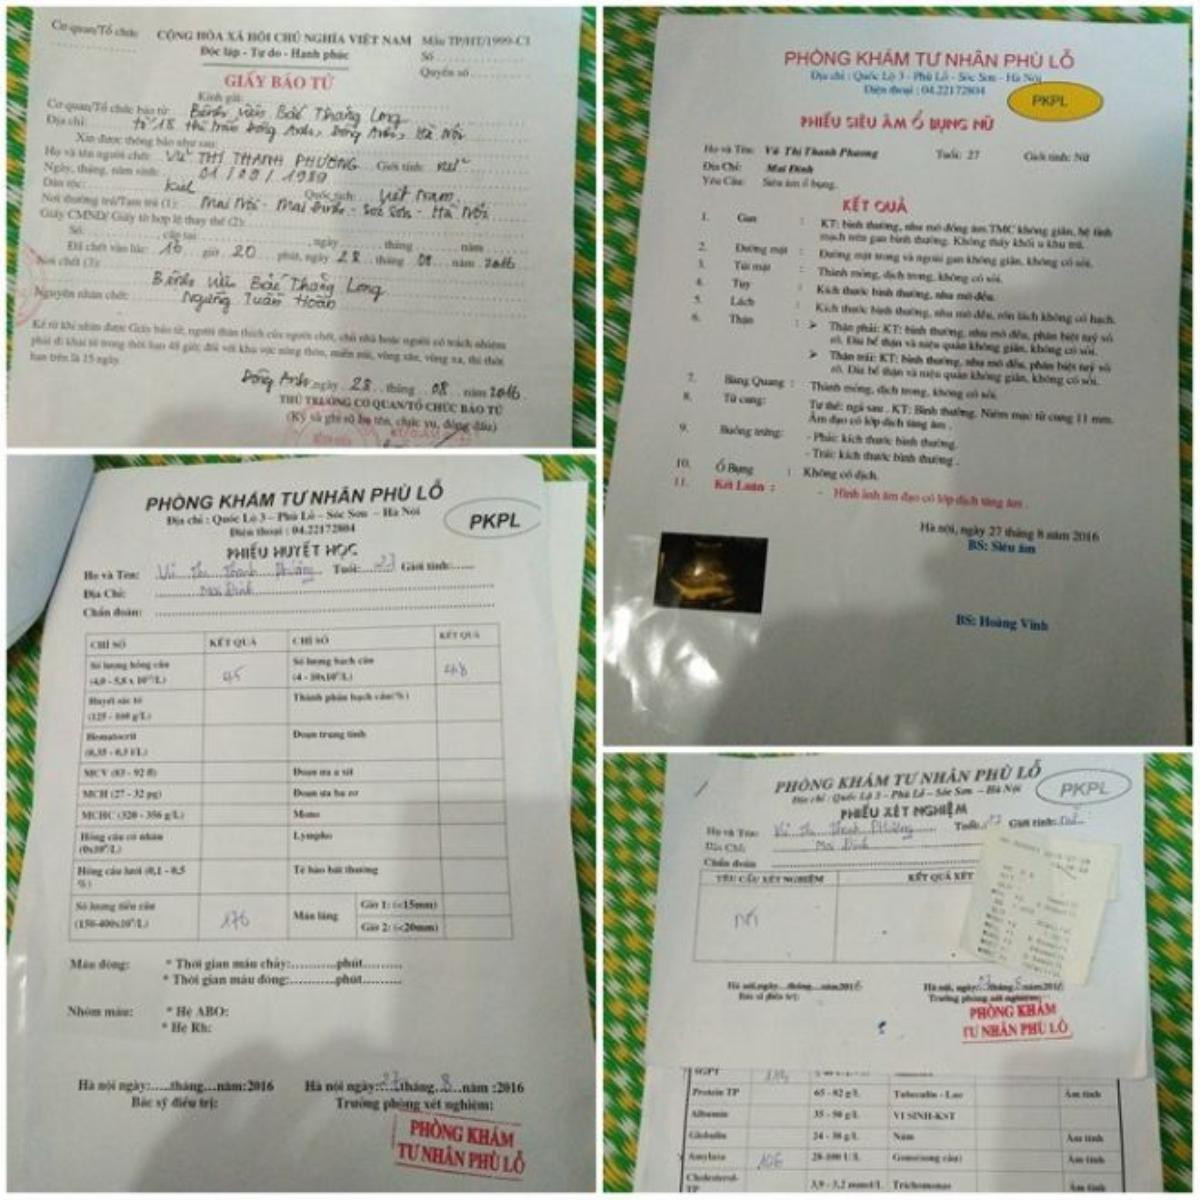 Cơ quan/Tổ chức
CỘNG HÒA XÃ HỘI CHỦ NGHĨA VIỆT NAM
Mẫu TP/HT/1999-C1
Độc lập - Tự do - Hạnh phúc
Số
Quyển số
GIẤY BÁO TỬ
Kính gửi:
Cơ quan/Tổ chức báo tử: Bệnh viện Bắc Thăng Long
Địa chỉ: tổ 18 thị trấn Đông Anh, Đông Anh, Hà Nội
Xin được thông báo như sau:
Họ và tên người chết: VŨ THỊ THANH PHƯƠNG Giới tính: nữ
Ngày, tháng, năm sinh: 01/09/1989
Dân tộc: Kinh Quốc tịch: Việt Nam
Nơi thường trú/Tạm trú (1): Mai Nội - Mai Đình - Sóc Sơn - Hà Nội
Giấy CMND/ Giấy tờ hợp lệ thay thế (2):
Số: cấp tại ngày tháng năm
Đã chết vào lúc: 16 giờ 20 phút, ngày 28 tháng 08 năm 2016
Nơi chết (3): Bệnh viện Bắc Thăng Long
Nguyên nhân chết: Ngừng Tuần Hoàn
Kể từ khi nhận được Giấy báo tử, người thân thích của người chết, chủ nhà hoặc người có trách nhiệm
phải đi khai tử trong thời hạn 48 giờ, đối với khu vực nông thôn, miền núi, vùng sâu, vùng xa, thì thời
hạn trên là 15 ngày.
Đông Anh, ngày 28 tháng 08 năm 2016
THỦ TRƯỞNG CƠ QUAN/TỔ CHỨC BÁO TỬ
(Ký và ghi rõ họ tên, chức vụ, đóng dấu)
PHÒNG KHÁM TƯ NHÂN PHÙ LỖ
Địa chỉ : Quốc Lộ 3 - Phù Lỗ - Sóc Sơn - Hà Nội
Điện thoại : 04.22172804
PKPL
PHIẾU SIÊU ÂM Ổ BỤNG NỮ
Họ và Tên: Vũ Thị Thanh Phương Tuổi: 27 Giới tính: Nữ
Địa Chỉ: Mai Đình
Yêu Cầu: Siêu âm ổ bụng.
KẾT QUẢ
1. Gan : KT: bình thường, nhu mô đồng âm. TMC không giãn, hệ tĩnh
mạch trên gan bình thường. Không thấy khối u khu trú.
2. Đường mật : Đường mật trong và ngoài gan không giãn, không có sỏi.
3. Túi mật : Thành mỏng, dịch trong, không có sỏi.
4. Tụy : Kích thước bình thường, nhu mô đều.
5. Lách : Kích thước bình thường, nhu mô đều, rốn lách không có hạch.
6. Thận : ➢ Thận phải: KT: bình thường, nhu mô đều, phân biệt tuỷ vỏ
rõ. Đài bể thận và niệu quản không giãn, không có sỏi.
➢ Thận trái: KT: bình thường, nhu mô đều, phân biệt tuỷ vỏ
rõ. Đài bể thận và niệu quản không giãn, không có sỏi.
7. Bàng Quang : Thành mỏng, dịch trong, không có sỏi.
8. Tử cung: Tư thế: ngả sau . KT: Bình thường. Niêm mạc tử cung 11 mm.
Âm đạo có lớp dịch tăng âm .
9. Buồng trứng: - Phải: kích thước bình thường.
- Trái: kích thước bình thường .
10. Ổ Bụng : Không có dịch.
11. Kết Luận : - Hình ảnh âm đạo có lớp dịch tăng âm .
Hà nội, ngày 27 tháng 8 năm 2016
BS: Siêu âm
BS: Hoàng Vinh
PHÒNG KHÁM TƯ NHÂN PHÙ LỖ
Địa chỉ : Quốc Lộ 3 – Phù Lỗ – Sóc Sơn – Hà Nội
Điện thoại : 04.22172804
PKPL
PHIẾU HUYẾT HỌC
Họ và Tên: Vũ Thị Thanh Phương Tuổi: 27 Giới tính:
Địa Chỉ: Mai Đình
Chẩn đoán:
CHỈ SỐ KẾT QUẢ CHỈ SỐ KẾT QUẢ
Số lượng hồng cầu 45 Số lượng bạch cầu 48
Huyết sắc tố Thành phần bạch cầu(%)
(125 - 160 g/L)
Hematocrit Đoạn trung tính
(0,35 - 0,5 l/L)
MCV (83 - 92 fl) Đoạn ưa a xít
MCH (27 - 32 pg) Đoạn ưa ba zơ
MCHC (320 - 356 g/L) Mono
Hồng cầu có nhân Lympho
Hồng cầu lưới (0,1 - 0,5 Tế bào bất thường
%)
Số lượng tiểu cầu 176 Máu lắng Giờ 1: (<15mm)
Giờ 2: (<20mm)
Máu đông: * Thời gian máu chảy:............phút
* Thời gian máu đông:...........phút
Nhóm máu: * Hệ ABO:
* Hệ Rh:
Hà nội ngày:.....tháng....năm:2016 Hà nội ngày:27 tháng 8 năm :2016
Bác sỹ điều trị: Trưởng phòng xét nghiệm:
PHÒNG KHÁM
TƯ NHÂN PHÙ LỖ
PHÒNG KHÁM TƯ NHÂN PHÙ LỖ
Địa chỉ : Quốc Lộ 3 – Phù Lỗ – Sóc Sơn – Hà Nội
PKPL
PHIẾU XÉT NGHIỆM
Họ và Tên: Vũ Thị Thanh Phương Tuổi: 27 Giới tính: nữ
Địa Chỉ: Mai Đình
Chẩn đoán
YÊU CẦU XÉT NGHIỆM KẾT QUẢ XÉT
Hà nội,ngày....tháng....năm2016 Hà nội, ngày:27 tháng 8 năm2016
Bác sĩ điều trị: Trưởng phòng xét nghiệm:
PHÒNG KHÁM
TƯ NHÂN PHÙ LỖ
SGPT
Protein TP 65 - 82 g/L Tubeculin - Lao Âm tính
Albumin 35 - 50 g/L VI SINH-KST
Globulin 24 - 38 g/L Nấm Âm tính
Amylaza 106 28-100 U/L Gono(song cầu) Âm tính
Cholesterol- 3,9 - 5,2 mmol/L Trichomonas Âm tính
TP